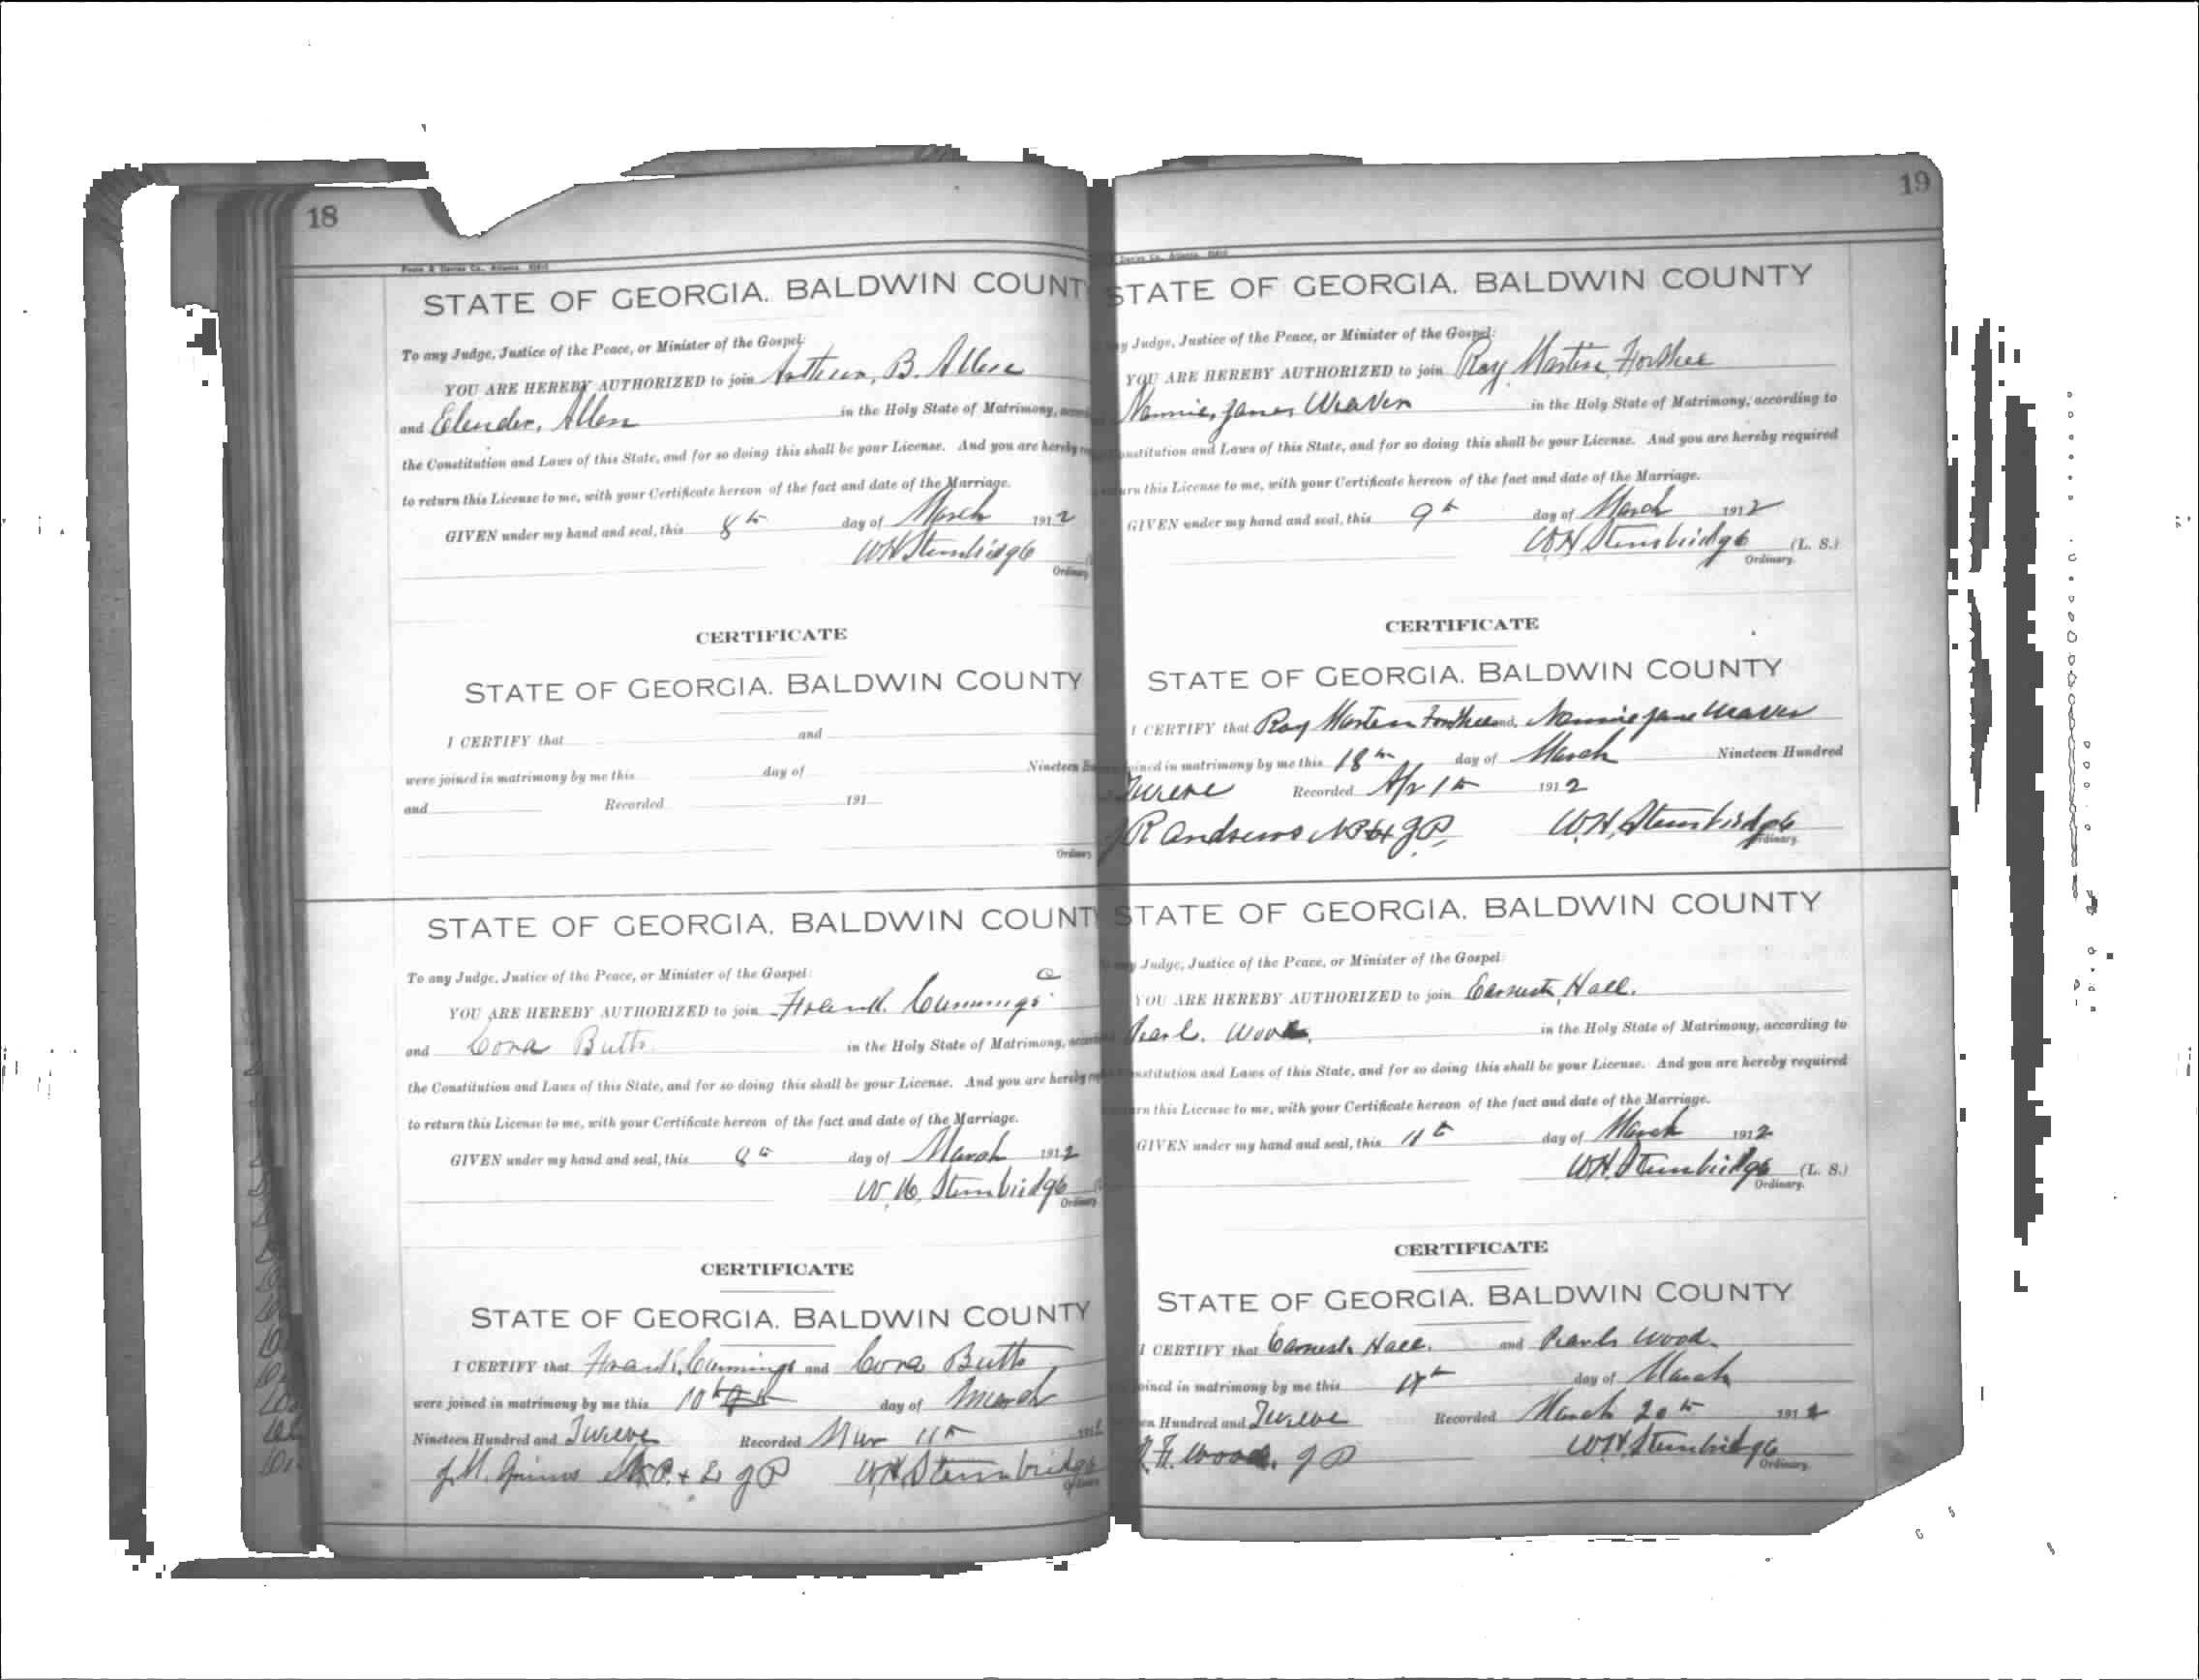 18
STATE OF GEORGIA. BALDWIN COUNT
To any Judge, Justice of the Peace, or Minister of the Gospel:
YOU ARE HEREBY AUTHORIZED to join B. Allen
and Elender, Allen in the Holy State of Matrimony,
the Constitution and Laws of this State, and for so doing this shall be your License. And you are hereby
to return this License to me, with your Certificate hereon of the fact and date of the Marriage.
GIVEN under my hand and seal, this 8th day of March 1912
WH Stembridge
Ordinary
CERTIFICATE
STATE OF GEORGIA. BALDWIN COUNTY
I CERTIFY that and
were joined in matrimony by me this day of Nineteen
and Recorded 191
Ordinary
STATE OF GEORGIA. BALDWIN COUNT
To any Judge, Justice of the Peace, or Minister of the Gospel: C
YOU ARE HEREBY AUTHORIZED to join Frank. Cummings
and Cora Butts in the Holy State of Matrimony,
the Constitution and Laws of this State, and for so doing this shall be your License. And you are hereby
to return this License to me, with your Certificate hereon of the fact and date of the Marriage.
GIVEN under my hand and seal, this 8th day of March 1912
W. H. Stembridge
Ordinary
CERTIFICATE
STATE OF GEORGIA. BALDWIN COUNTY
I CERTIFY that Frank, Cummings and Cora Butts
were joined in matrimony by me this 10th day of March
Nineteen Hundred and Twelve Recorded Mar 11th 1912
J. H. J P W. H. Stembridge
Ordinary
19
STATE OF GEORGIA. BALDWIN COUNTY
y Judge, Justice of the Peace, or Minister of the Gospel:
YOU ARE HEREBY AUTHORIZED to join Roy Martin
Nannie, Jane Weaver in the Holy State of Matrimony, according to
onstitution and Laws of this State, and for so doing this shall be your License. And you are hereby required
urn this License to me, with your Certificate hereon of the fact and date of the Marriage.
GIVEN under my hand and seal, this 9th day of March 1912
WH Stembridge (L. S.)
Ordinary.
CERTIFICATE
STATE OF GEORGIA. BALDWIN COUNTY
I CERTIFY that Roy Martin and, Nannie Jane Weaver
joined in matrimony by me this 18th day of March Nineteen Hundred
Twelve Recorded Apr 1st 1912
J R Andrews NP & Ex J P, W. H. Stembridge
Ordinary.
STATE OF GEORGIA. BALDWIN COUNTY
y Judge, Justice of the Peace, or Minister of the Gospel:
YOU ARE HEREBY AUTHORIZED to join Earnest, Hall.
Pearl. Wood. in the Holy State of Matrimony, according to
nstitution and Laws of this State, and for so doing this shall be your License. And you are hereby required
urn this License to me, with your Certificate hereon of the fact and date of the Marriage.
GIVEN under my hand and seal, this 11th day of March 1912
WH. Stembridge (L. S.)
Ordinary.
CERTIFICATE
STATE OF GEORGIA. BALDWIN COUNTY
I CERTIFY that Earnest. Hall. and Pearl Wood.
joined in matrimony by me this day of March
en Hundred and Twelve Recorded March 20th 1912
Wood. J P WH Stembridge
Ordinary.